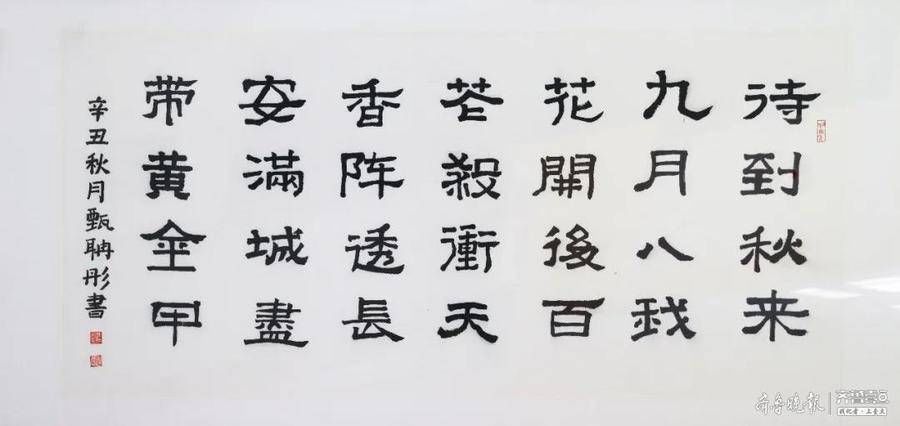 待到秋来
九月八我
花開後百
花殺衝天
香阵透長
安滿城盡
带黄金甲
辛丑秋月甄聃彤書
齐鲁晚报
齐鲁壹点
找记者·上壹点